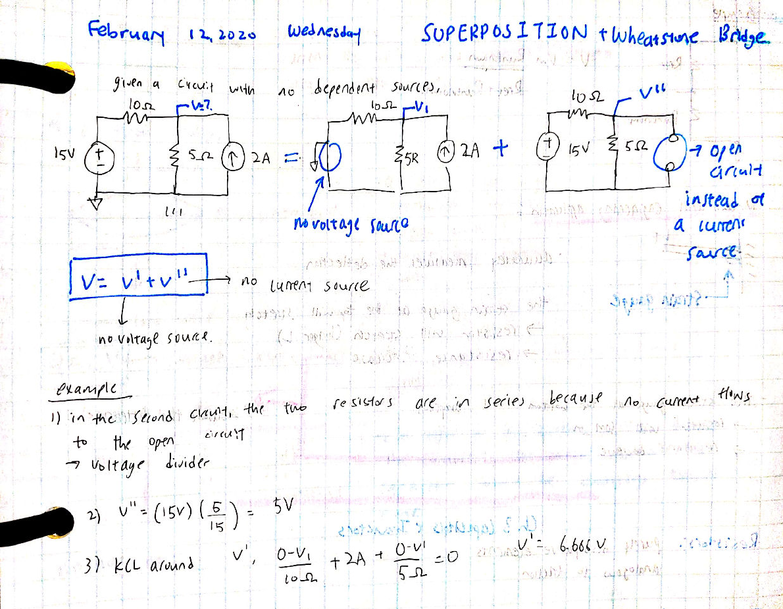 February 12, 2020 Wednesday SUPERPOSITION + Wheatstone Bridge
given a circuit with no dependent sources,
10Ω V=?
15V 5Ω 2A
=
10Ω V1
5R 2A
no voltage source
+
10Ω V''
15V 5Ω
→ open
circuit
instead of
a current
source
V = V' + V'' → no current source
no voltage source.
example
1) in the second circuit, the two resistors are in series because no current flows
to the open circuit
→ voltage divider
2) V'' = (15V) (5/15) = 5V
3) KCL around V', 0-V1/10Ω + 2A + 0-V'/5Ω = 0 V' = 6.666 V